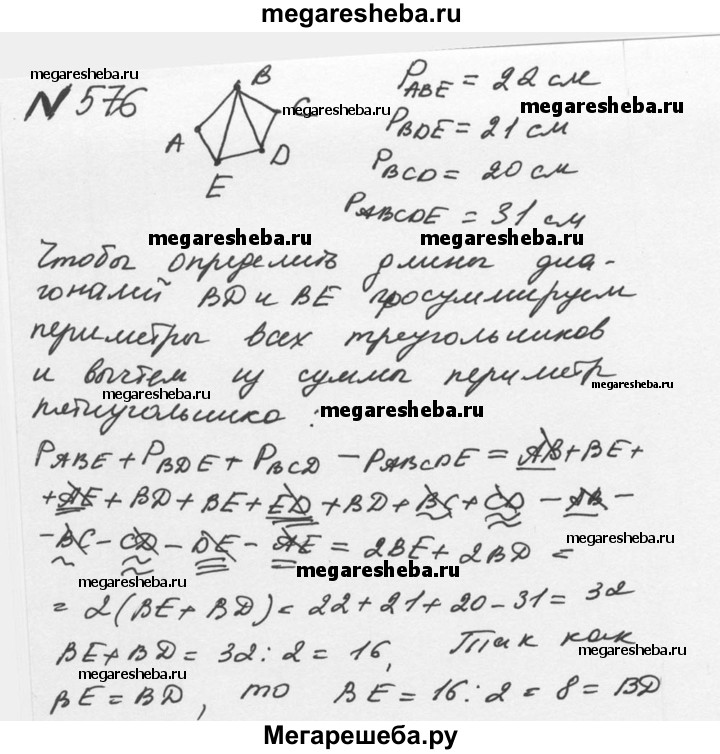 megaresheba.ru
megaresheba.ru
N 576
B
C
A
D
E
megaresheba.ru
P_ABE = 22 см
megaresheba.ru
P_BDE = 21 см
P_BCD = 20 см
P_ABCDE = 31 см
megaresheba.ru megaresheba.ru
Чтобы определить длины диа-
гоналей BD и BE просуммируем
периметры всех треугольников
и вычтем из суммы периметр
megaresheba.ru megaresheba.ru
пятиугольника :
megaresheba.ru
P_ABE + P_BDE + P_BCD - P_ABCDE = AB + BE +
+ AE + BD + BE + ED + BD + BC + CD - AB -
- BC - CD - DE - AE = 2BE + 2BD =
megaresheba.ru
megaresheba.ru megaresheba.ru
= 2(BE + BD) = 22 + 21 + 20 - 31 = 32
BE + BD = 32 : 2 = 16, Так как
megaresheba.ru megaresheba.ru
BE = BD, то BE = 16 : 2 = 8 = BD
Мегарешеба.ру